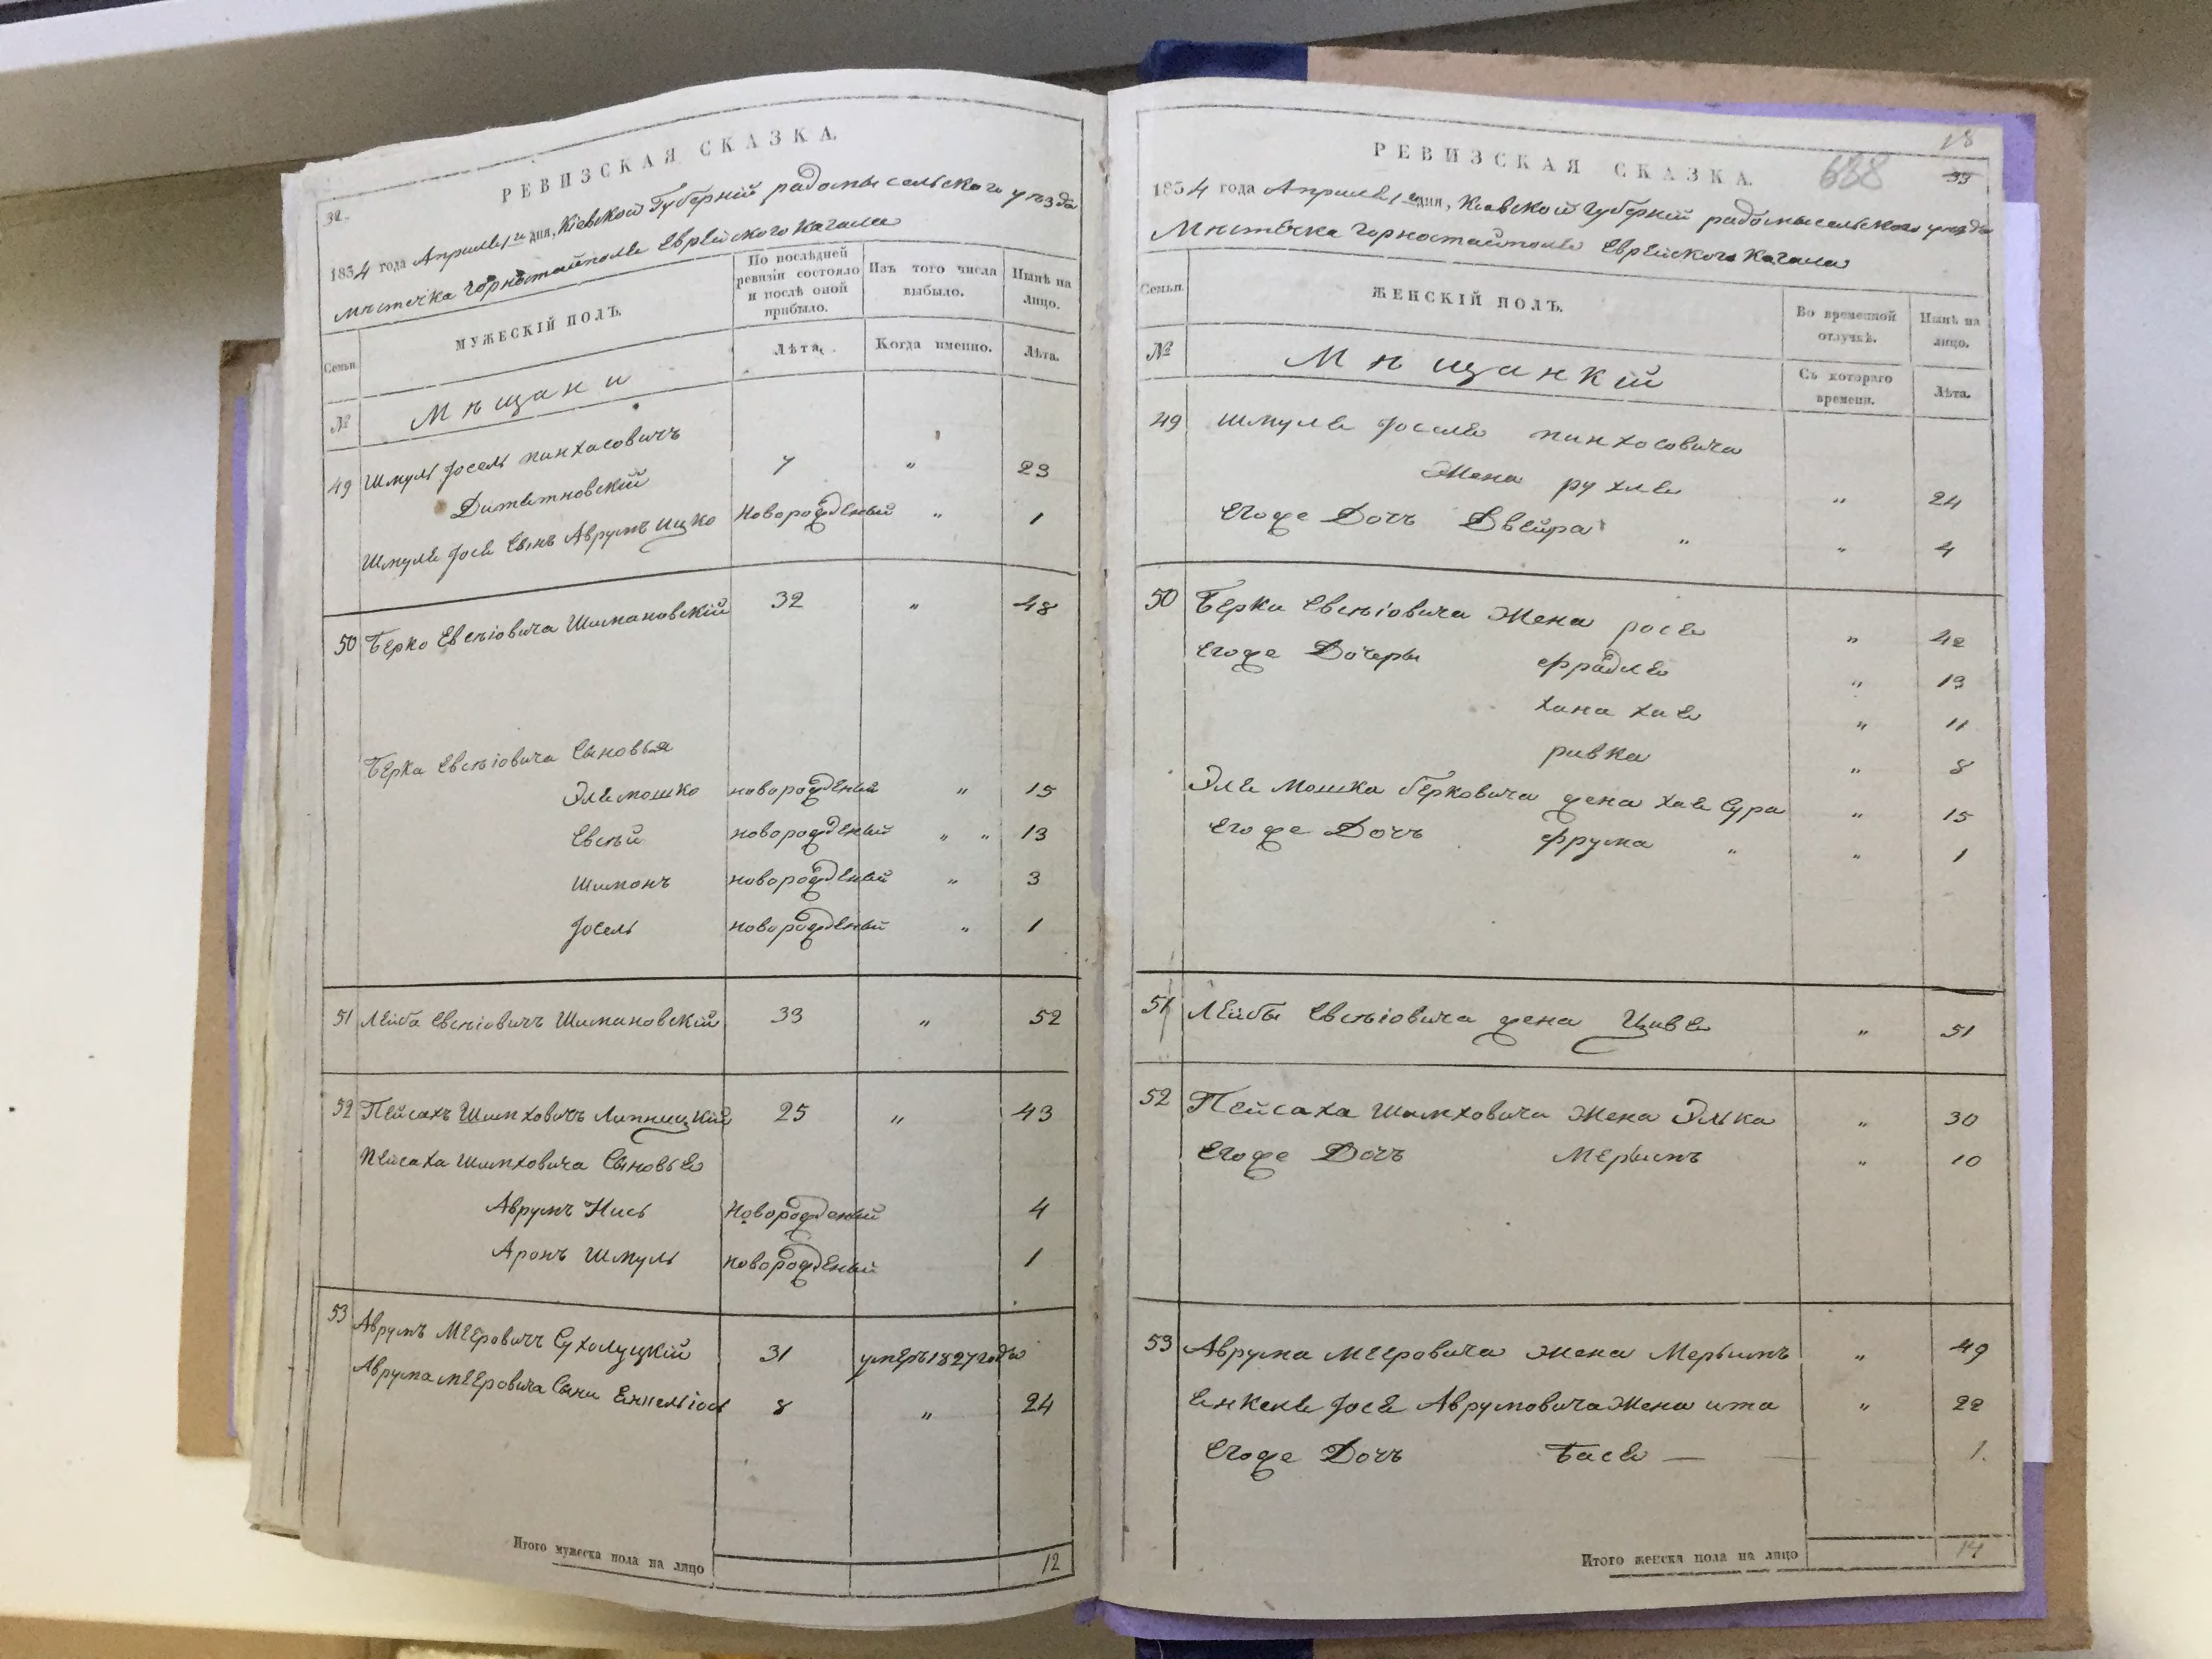 32.
РЕВИЗСКАЯ СКАЗКА.
1834 года Апреля 1го дня, Кіевской Губерніи радомысельского уезда
мѣстечка Горностайполе Еврейского Кагала
Семьи
МУЖЕСКІЙ ПОЛЪ.
По послѣдней ревизіи состояло и послѣ оной прибыло.
Изъ того числа выбыло.
Нынѣ на лицо.
№
Мѣщани
Лѣта.
Когда именно.
Лѣта.
49 Шмуль Іосель пинхасовичъ
7 " 23
Шмуля Іося Сынъ Аврумъ ицко Новорожденый " 1
50 Берко Евсѣіовича Шимановскій 32 " 48
Берка Евсѣіовича Сыновья
Эля мошко новорожденый " 15
Евсѣй новорожденый " " 13
Шимонъ новорожденый " 3
Іосель новорожденый " 1
51 Лейба Евсѣіовичъ Шимановскій 33 " 52
52 Пейсахъ Шимховичъ Липницкій 25 " 43
Пейсаха Шимховича Сыновья
Аврумъ Нись Новорожденый 4
Аронъ Шмуль новорожденый 1
53 Аврумъ Мееровичъ Сухолуцкій 31 умеръ 1827 года
Аврума Мееровича Сыни Енкель іось 8 " 24
Итого мужеска пола на лицо 12
18
688
33
РЕВИЗСКАЯ СКАЗКА.
1834 года Апреля 1го дня, Кіевской Губерніи радомысельского уезда
Мѣстечка Горностайполя Еврейского Кагала
Семьи.
ЖЕНСКІЙ ПОЛЪ.
Во временной отлучкѣ.
Нынѣ на лицо.
№
Мѣщанкій
Съ котораго времени.
Лѣта.
49 Шмуля Іоселя пинхосовича
Жена рухля " 24
Егоже Дочъ Двейра " " 4
50 Берка Евсѣіовича Жена рося " 42
Егоже Дочеры фрадля " 13
хана хая " 11
ривка " 8
Эля Мошка Берковича жена хая Сура " 15
Егоже Дочъ фрума " " 1
51 Лейбы Евсѣіовича жена Цивя " 51
52 Пейсаха Шимховича Жена Элька " 30
Егоже Дочъ Мерымъ " 10
53 Аврума Мееровича Жена Мерымъ " 49
Енкеля Іося Аврумовича Жена ита " 22
Егоже Дочъ Бася — 1.
Итого женска пола на лицо 14